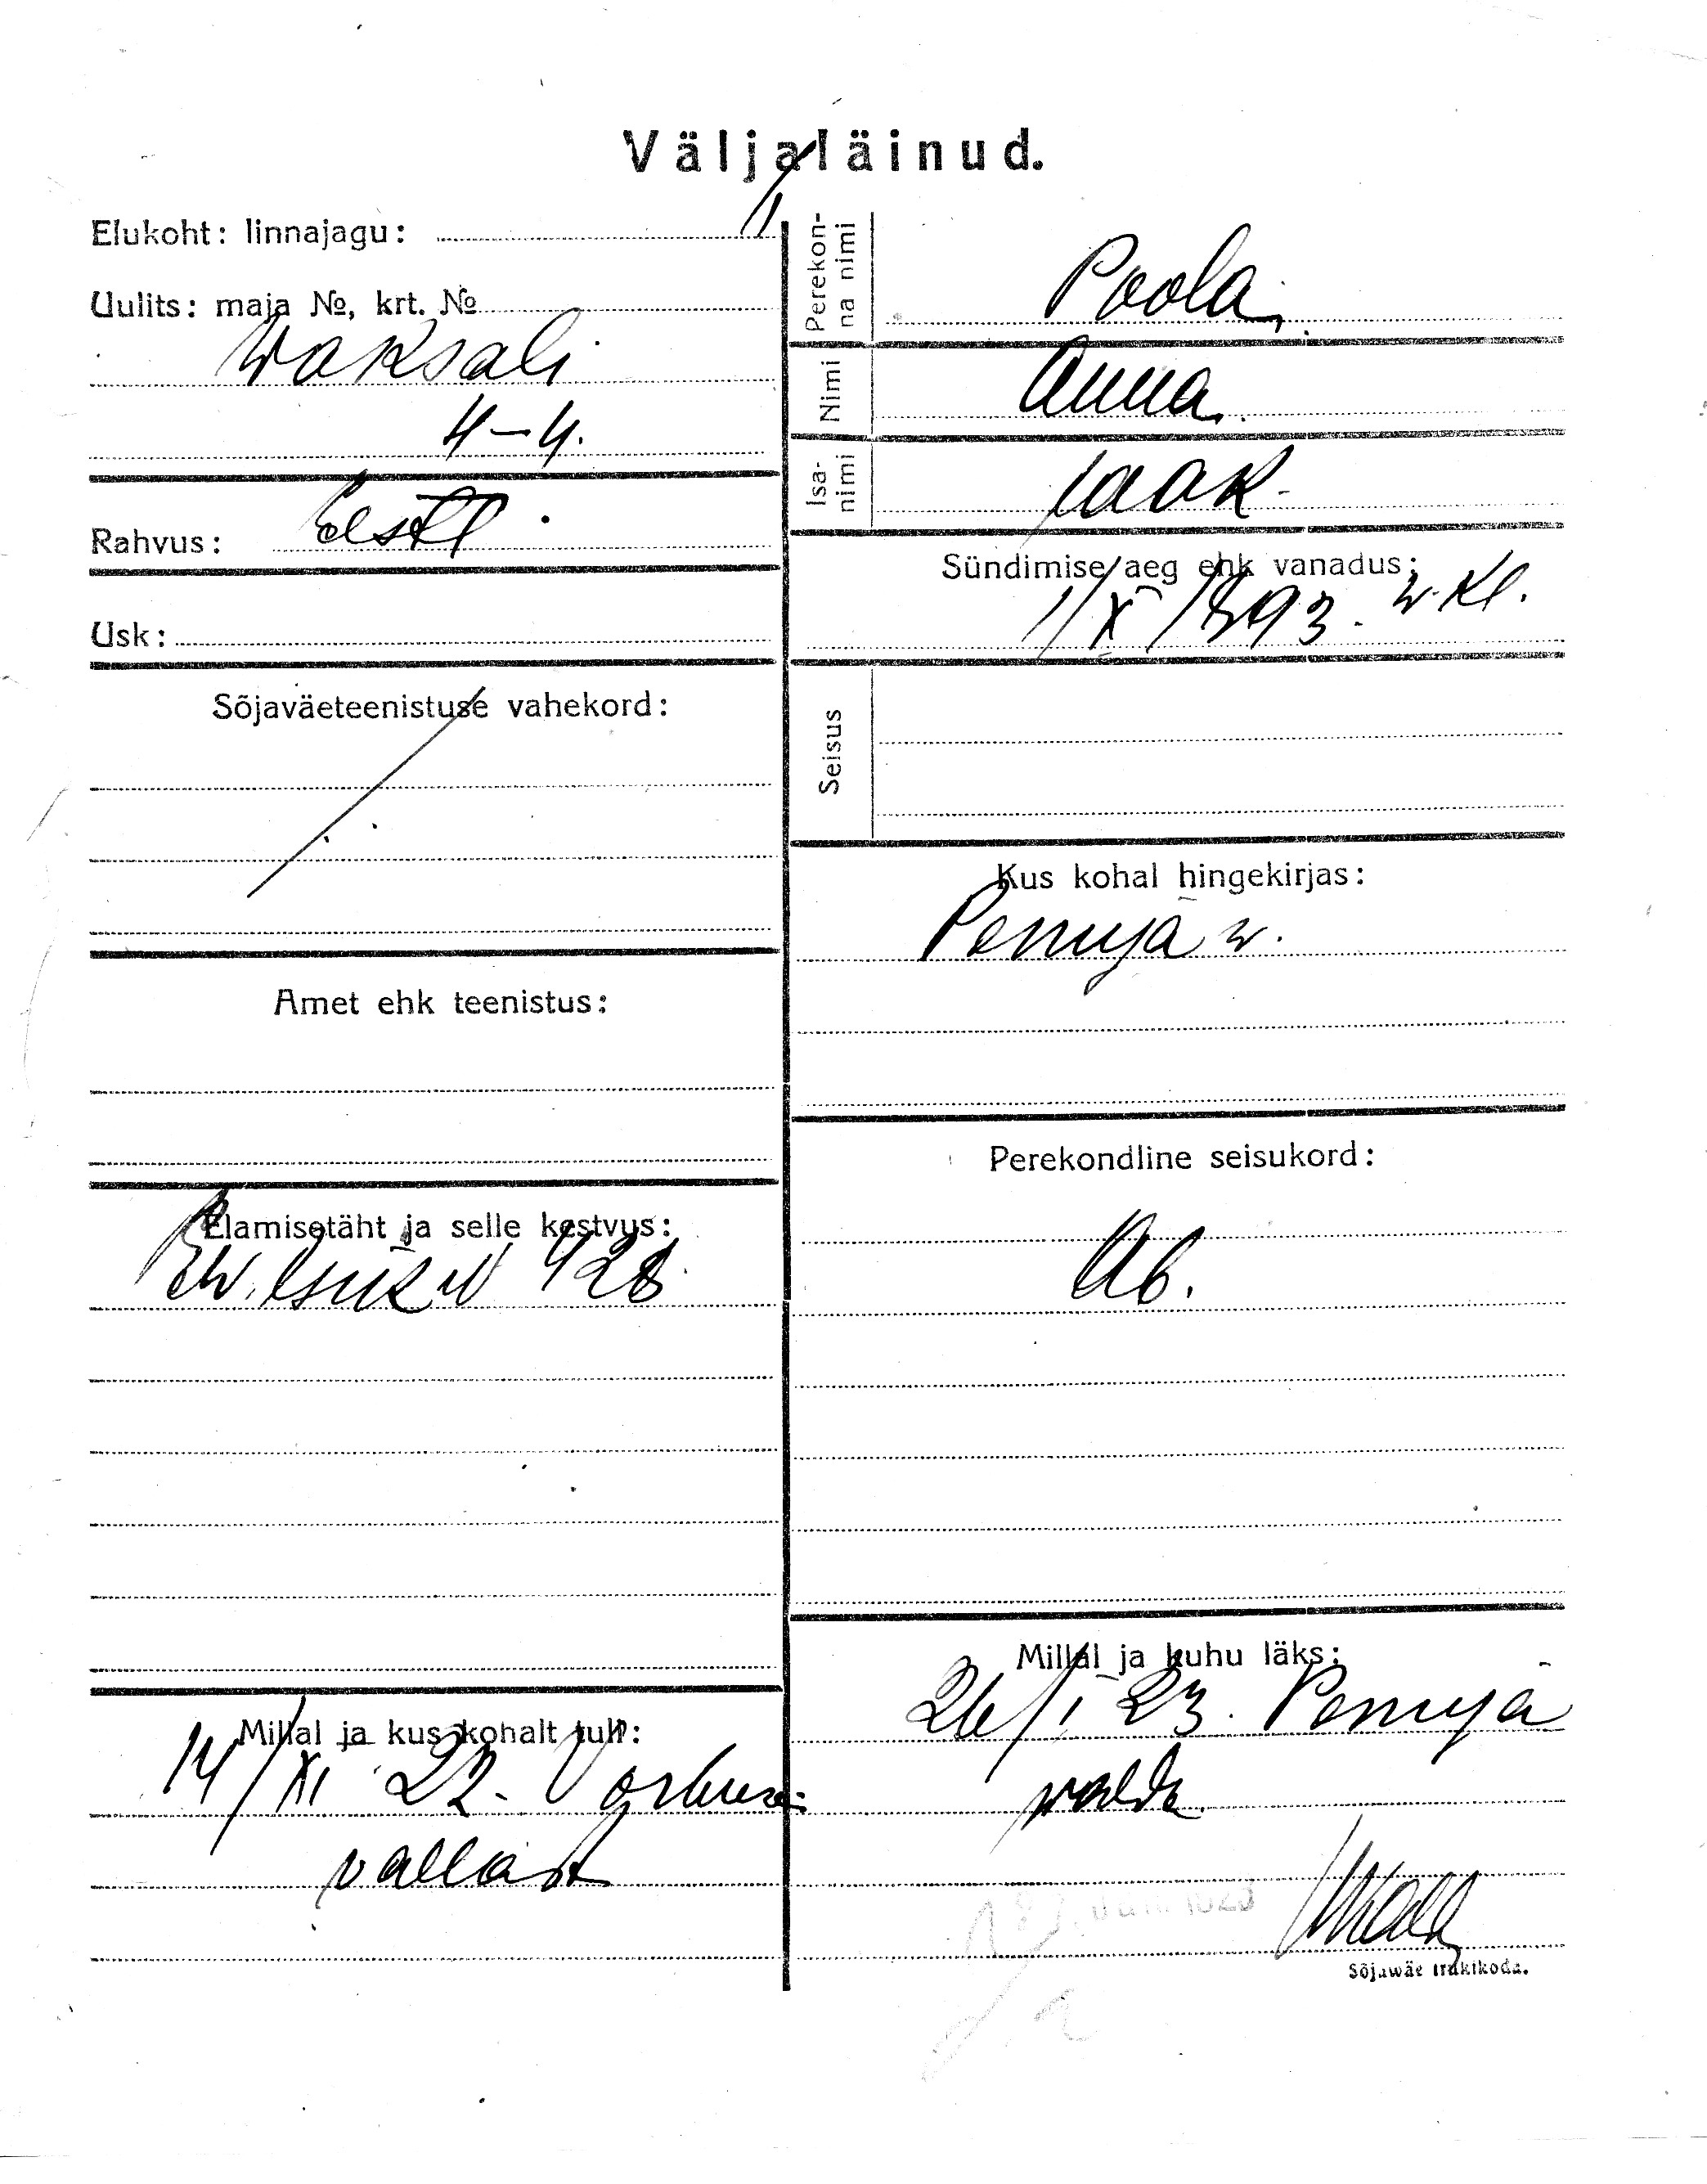 Väljaläinud.
Elukoht: linnajagu: II
Uulits: maja №, krt. №
Waksali
4–4.
Rahvus: Eesti.
Usk:
Sõjaväeteenistuse vahekord:
Amet ehk teenistus:
Elamisetäht ja selle kestvus:
428
Millal ja kus kohalt tuli:
14/XI 22.
vallast
Perekonna nimi
Poola,
Nimi
Anna.
Isanimi
Jaak
Sündimise aeg ehk vanadus:
1/X 1893. w. kl.
Seisus
Kus kohal hingekirjas:
Penuja w.
Perekondline seisukord:
Ab.
Millal ja kuhu läks:
26/I 23. Penuja
walda
Sõjawäe trükikoda.